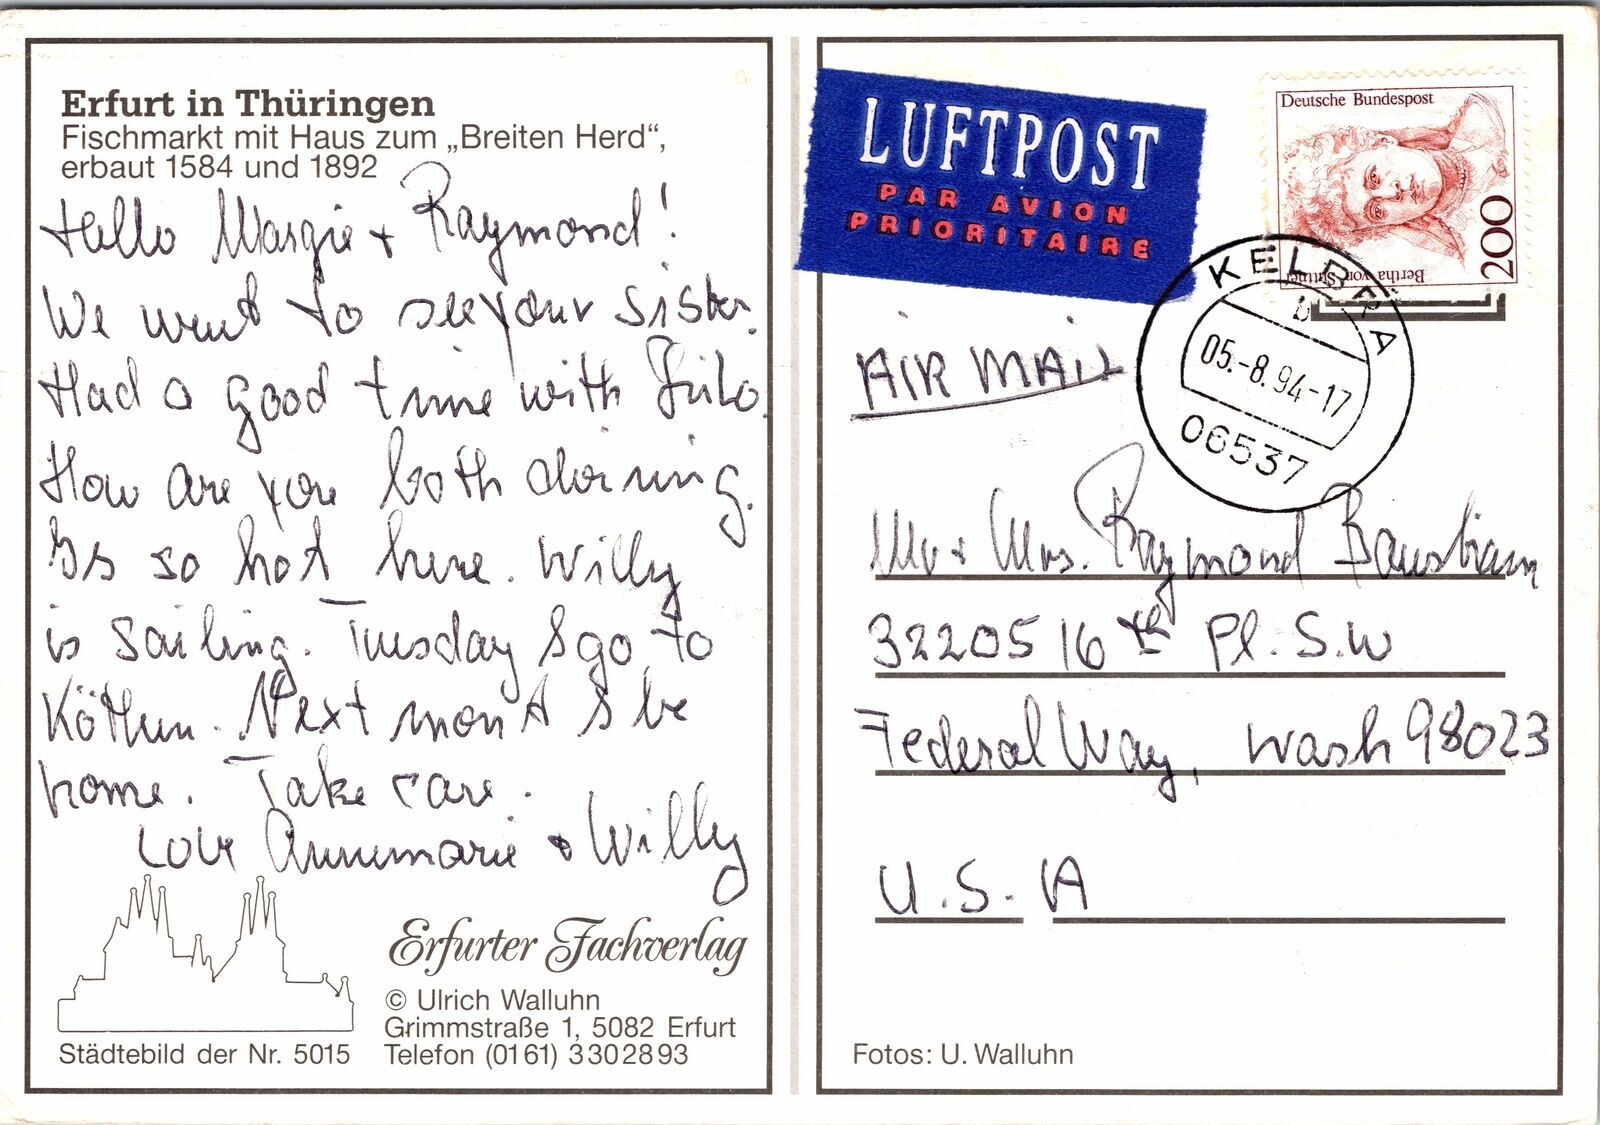 Erfurt in Thüringen
Fischmarkt mit Haus zum „Breiten Herd“,
erbaut 1584 und 1892
Hello Margie + Raymond!
We went to see your sister.
Had a good time with
How are you both doining.
Is so hot here. Willy
is sailing. Tuesday I go to
Köthen. Next mont I be
home. Take care.
Love Annemarie + Willy
Erfurter Fachverlag
© Ulrich Walluhn
Grimmstraße 1, 5082 Erfurt
Städtebild der Nr. 5015 Telefon (0161) 3302893
LUFTPOST
PAR AVION
PRIORITAIRE
Deutsche Bundespost
200
Bertha von Suttner
KELBRA
b
05.-8.94-17
06537
AIR MAIL
Mr + Mrs. Raymond
32205 16th Pl. S.W
Federal Way, Wash 98023
U.S.A
Fotos: U. Walluhn